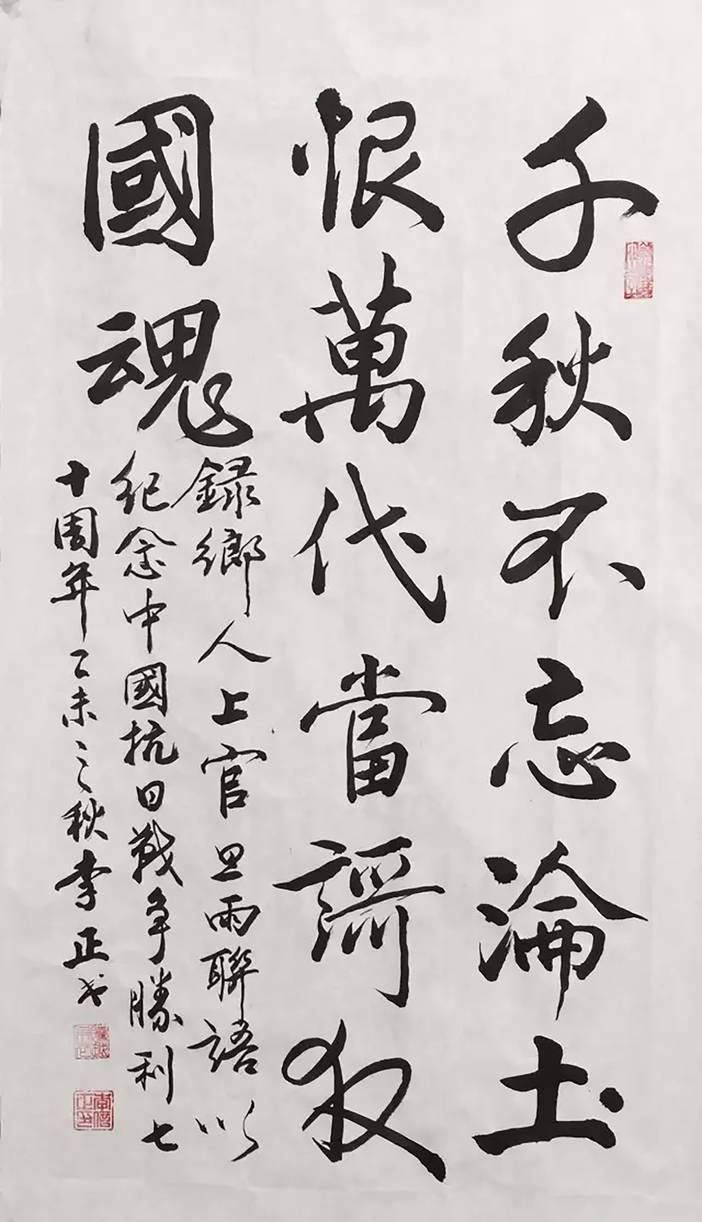 千秋不忘淪土
恨萬代當謌
國魂
録鄉人上官旦雨聯語以
紀念中國抗日戰争勝利七
十周年乙未之秋李正书